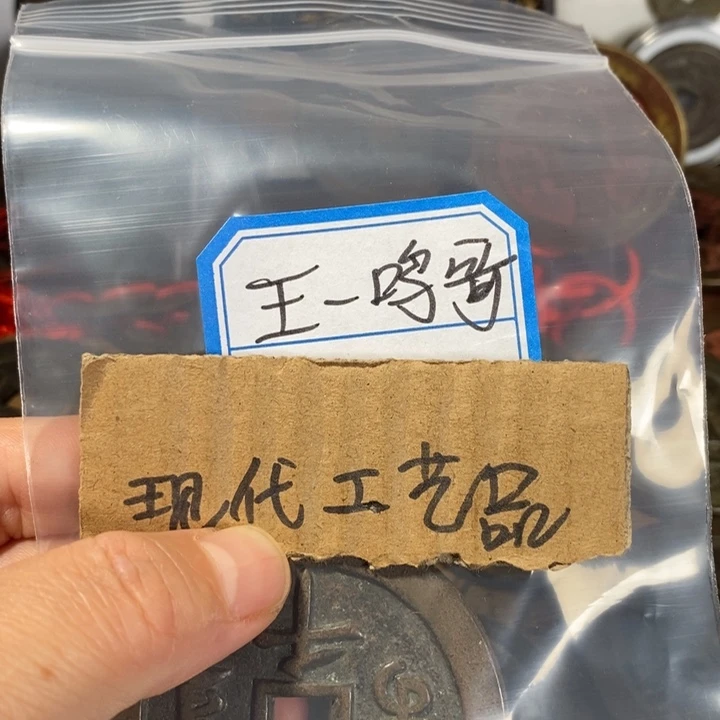 王一鸣哥
现代工艺品